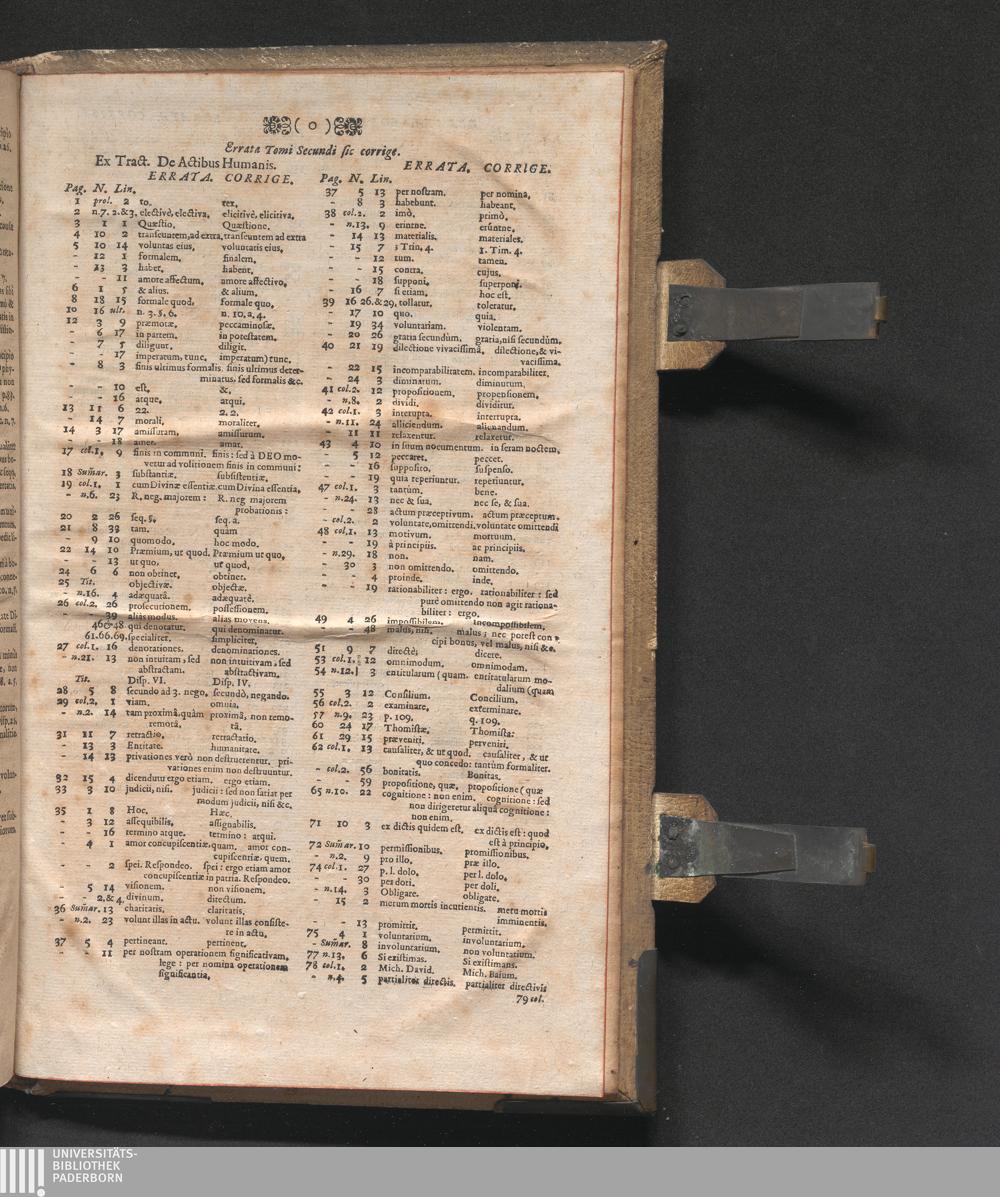 ( o )
Errata Tomi Secundi sic corrige.
Ex Tract. De Actibus Humanis.
ERRATA. CORRIGE.
Pag. N. Lin.
1 prol. 2 to. tex,
2 n.7. 2.&3. electivè, electiva, elicitivè, elicitiva,
3 1 1 Quæstio. Quæstione.
4 10 2 transeuntem, ad extra. transeuntem ad extra
5 10 14 voluntas eius, voluntatis eius,
- 12 1 formalem, finalem,
- 23 3 habet, habent,
- - 11 amore affectum, amore affectivo,
6 1 5 & alius. & alium,
8 18 15 formale quod. formale quo,
10 16 ult. n. 3. 5. 6. n. 10. a. 4.
12 3 9 præmotæ, peccaminosæ,
- 6 17 in partem. in potestatem.
- 7 5 diligunt. diligit.
- - 17 imperatum, tunc. imperatum) tunc.
- 8 3 finis ultimus formalis. finis ultimus deter-
minatus, sed formalis &c.
- - 10 est, &,
- - 16 atque, atqui,
13 11 6 22. 2. 2.
- 14 7 morali, moraliter,
14 3 17 amissuram, amissurum.
- - 18 amet. amat.
17 col.1. 9 finis in communi. finis: sed à DEO mo-
vetur ad volitionem finis in communi:
18 Sumar. 3 substantiæ. subsistentiæ,
19 col.1. 1 cum Divinæ essentiæ. cum Divina essentia,
- n.6. 23 R. neg. majorem: R. neg majorem
probationis:
20 2 26 seq. 5. seq. a.
21 8 33 tam. quàm
- 9 10 quomodo, hoc modo.
22 14 10 Præmium, ut quod. Præmium ut quo,
- - 13 ut quo, ut quod,
24 6 6 non obtinet, obtinet.
25 Tit. objectivæ. objectæ.
- n.16. 4 adæquatâ. adæquatè.
26 col.2. 26 prosecutionem. possessionem.
- - 39 aliàs modus. alias movens.
46&48 qui denotatur. qui denominatur.
61.66.69. specialiter. simpliciter,
27 col.1. 16 denotationes. denominationes.
- n.21. 13 non intuitam, sed non intuitivam, sed
abstractam. abstractivam.
Tit. Disp. VI. Disp. IV.
28 5 8 secundo ad 3. nego. secundò, negando.
29 col.2. 1 viam. omnia.
- n.2. 14 tam proximâ, quàm proximâ, non remo-
remotâ. tâ.
31 11 7 retractio, retractatio.
- 13 3 Entitate. humanitate.
- 14 13 privationes verò non destruerentur. pri-
vationes enim non destruuntur.
32 15 4 dicendum ergo etiam. ergo etiam.
33 3 10 judicii, nisi. judicii: sed non satiat per
modum judicii, nisi &c.
35 1 8 Hoc. Hæc.
- 3 12 assequibilis, assignabilis.
- - 16 termino atque. termino: atqui.
- 4 1 amor concupiscentiæ, quam. amor con-
cupiscentiæ, quem.
- - 2 spei. Respondeo. spei: ergo etiam amor
concupiscentiæ in patria. Respondeo.
- 5 14 visionem. non visionem.
- - 2.&4. divinum. directum.
36 Sumar. 13 charitatis. claritatis.
- n.2. 23 volunt illas in actu. volunt illas consiste-
re in actu.
37 5 4 pertineant. pertinent.
- - 11 per nostram operationem significativam.
lege: per nomina operationem
significantia.
ERRATA. CORRIGE.
Pag. N. Lin.
37 5 13 per nostram. per nomina,
- 8 3 habebunt. habeant.
38 col.2. 2 imò. primò.
- n.13. 9 erintne. erúntne.
- 14 13 materialis. materiales.
- 15 7 3 Trin. 4. 1. Tim. 4.
- - 12 tum. tamen.
- - 15 contra. cujus.
- - 18 supponi. superponi.
- 16 7 si etiam. hoc est.
39 16 26.&29. tollatur. toleratur.
- 17 10 quo. quia.
- 19 34 voluntariam. violentam.
- 20 26 gratia secundùm. gratia, nisi secundùm.
40 21 19 dilectione vivacissimâ. dilectione, & vi-
vacissima.
- 22 15 incomparabilitatem. incomparabiliter.
- 24 3 diminatum. diminutum.
41 col.2. 12 propositionem. propensionem.
- n.8. 2 dividi. dividitur.
42 col.1. 3 interupta. interrupta.
- n.11. 24 alliciendum. alienandum.
- 11 11 relaxentur. relaxetur.
43 4 10 in suum nocumentum. in seram noctem.
- 5 12 peccaret. peccet.
- - 16 supposito. suspenso.
- - 19 quia reperiuntur. reperiuntur.
47 col.1. 3 tantùm. bene.
- n.24. 13 nec & sua. nec se, & sua.
- - 28 actum præceptivum. actum præceptum.
- col.2. 2 voluntate, omittendi. voluntate omittendi
48 col.1. 13 motivum. mortuum.
- - 19 à principiis. ac principiis.
- n.29. 18 non. nam.
- 30 3 non omittendo. omittendo.
- - 4 proinde. inde.
- - 19 rationabiliter: ergo. rationabiliter: sed
purè omittendo non agit rationa-
biliter: ergo.
49 4 26 impossibilem. incompossibilem.
- - 48 malus, nisi. malus; nec potest con-
cipi bonus, vel malus, nisi &c.
51 9 7 directè; dicere.
53 col.1. 12 omnimodum, omnimodam.
54 n.12. 3 entitularum (quam. entitatularum mo-
dalium (quam
55 3 12 Consilium. Concilium.
56 col.2. 2 examinare, exterminare.
57 n.9. 23 p. 109. q. 109.
60 24 17 Thomistæ, Thomista:
61 29 15 præveniri. perveniri.
62 col.1. 13 causaliter, & ut quod. causaliter, & ut
quo concedo: tantùm formaliter.
- col.2. 56 bonitatis. Bonitas.
- - 59 propositione, quæ. propositione (quæ
65 n.10. 22 cognitione: non enim. cognitione: sed
non dirigeretur aliqua cognitione:
non enim.
71 10 3 ex dictis quidem est, ex dictis est: quod
est à principio,
72 Sumar. 10 permissionibus. promissionibus.
- n.2. 9 pro illo. præ illo.
74 col.1. 27 p. l. dolo, per l. dolo,
- - 30 per doti. per doli.
- n.14. 3 Obligare. obligate.
- 15 2 metum mortis incutientis. metu mortis
imminentis.
- - 13 promittit. permittit.
75 4 1 voluntarium, involuntarium.
- Sumar. 8 involuntarium. non voluntarium.
77 n.13. 6 Si existimas. Si existimans.
78 col.1. 2 Mich. David. Mich. Baium.
- n.4. 5 partialiter directis. partialiter directivis
79 col.
UNIVERSITÄTS-
BIBLIOTHEK
PADERBORN